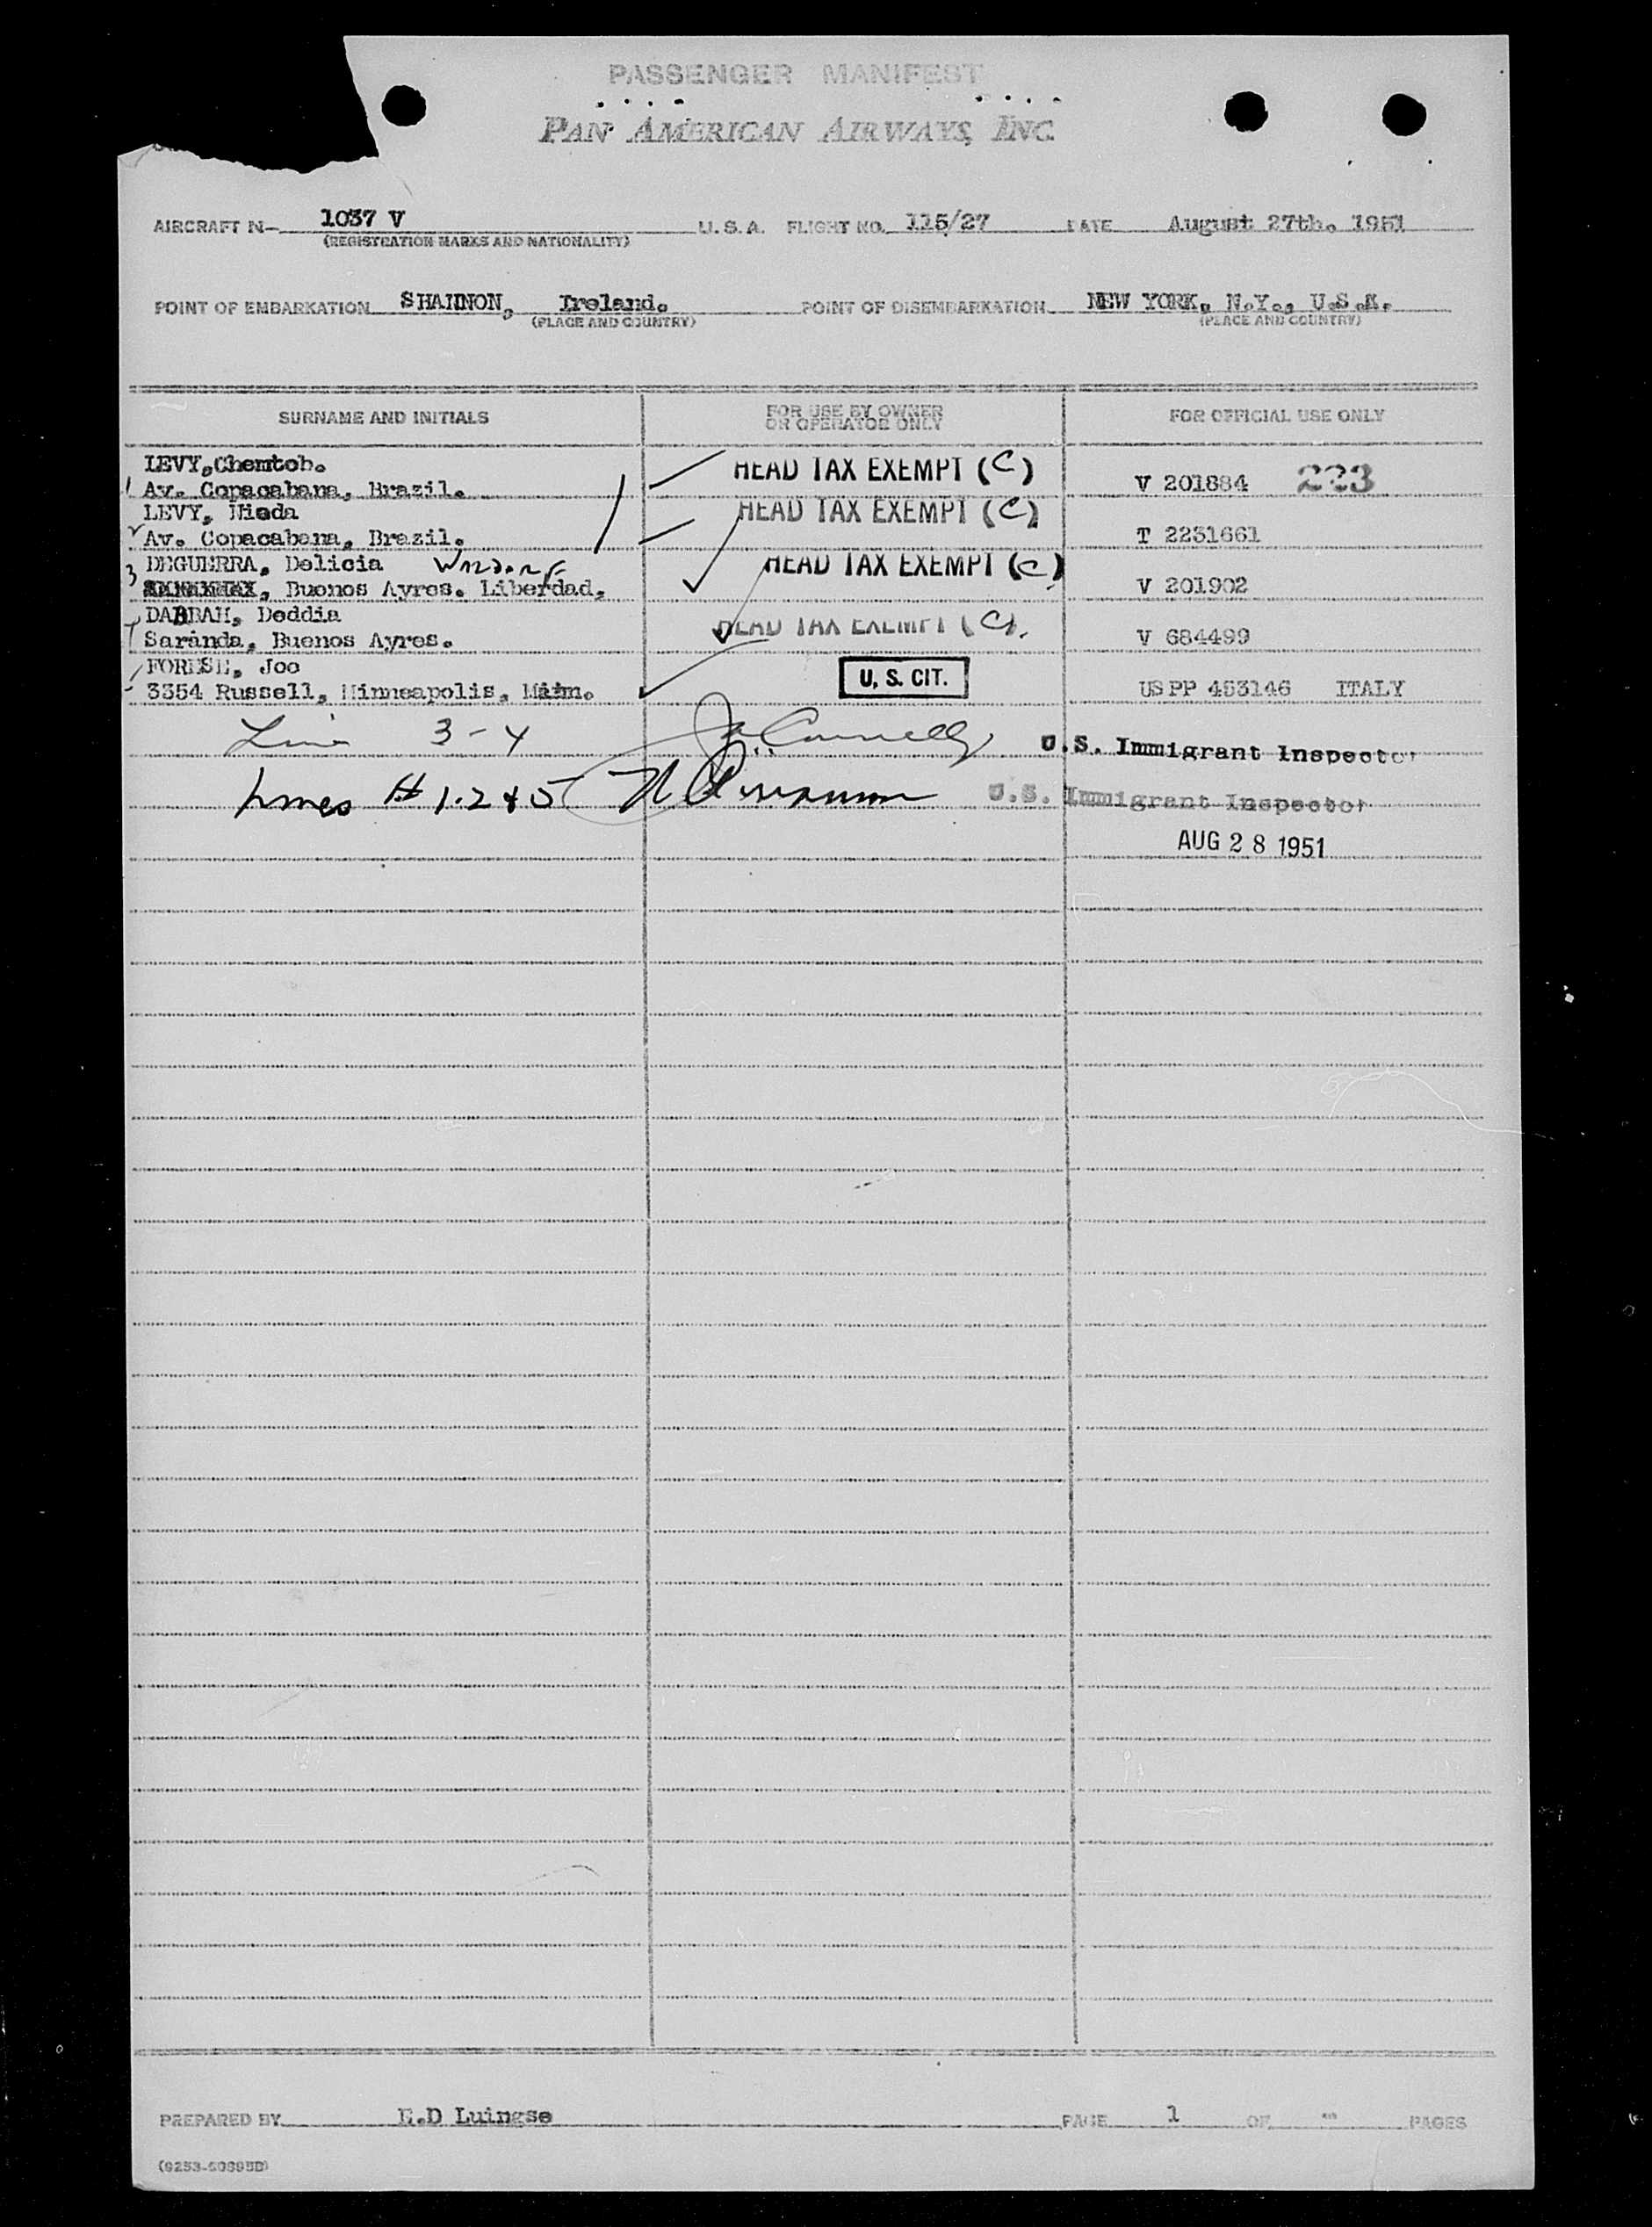 PASSENGER MANIFEST
PAN AMERICAN AIRWAYS, INC.
AIRCRAFT N- 1037 V U.S.A. FLIGHT NO. 115/27 DATE August 27th. 1951
(REGISTRATION MARKS AND NATIONALITY)
POINT OF EMBARKATION SHANNON, Ireland. POINT OF DISEMBARKATION NEW YORK, N.Y., U.S.A.
(PLACE AND COUNTRY) (PLACE AND COUNTRY)
SURNAME AND INITIALS FOR USE BY OWNER OR OPERATOR ONLY FOR OFFICIAL USE ONLY
LEVY, Chemtob.
1 Av. Copacabana, Brazil. HEAD TAX EXEMPT (C) V 201884 223
LEVY,
2 Av. Copacabana, Brazil. HEAD TAX EXEMPT (C) T 2231661
3 DEGUERRA, Delicia HEAD TAX EXEMPT (C)
Buenos Ayres. Liberdad, V 201902
DABBAH, Deddia
Saranda, Buenos Ayres. HEAD TAX EXEMPT (C). V 684499
FORESE, Joe
3354 Russell, Minneapolis, Minn. U.S. CIT. US PP 453146 ITALY
Line 3-4 U.S. Immigrant Inspector
Lines # 1.2 & 5 U.S. Immigrant Inspector
AUG 28 1951
PREPARED BY E.D Luingse PAGE 1 OF " PAGES